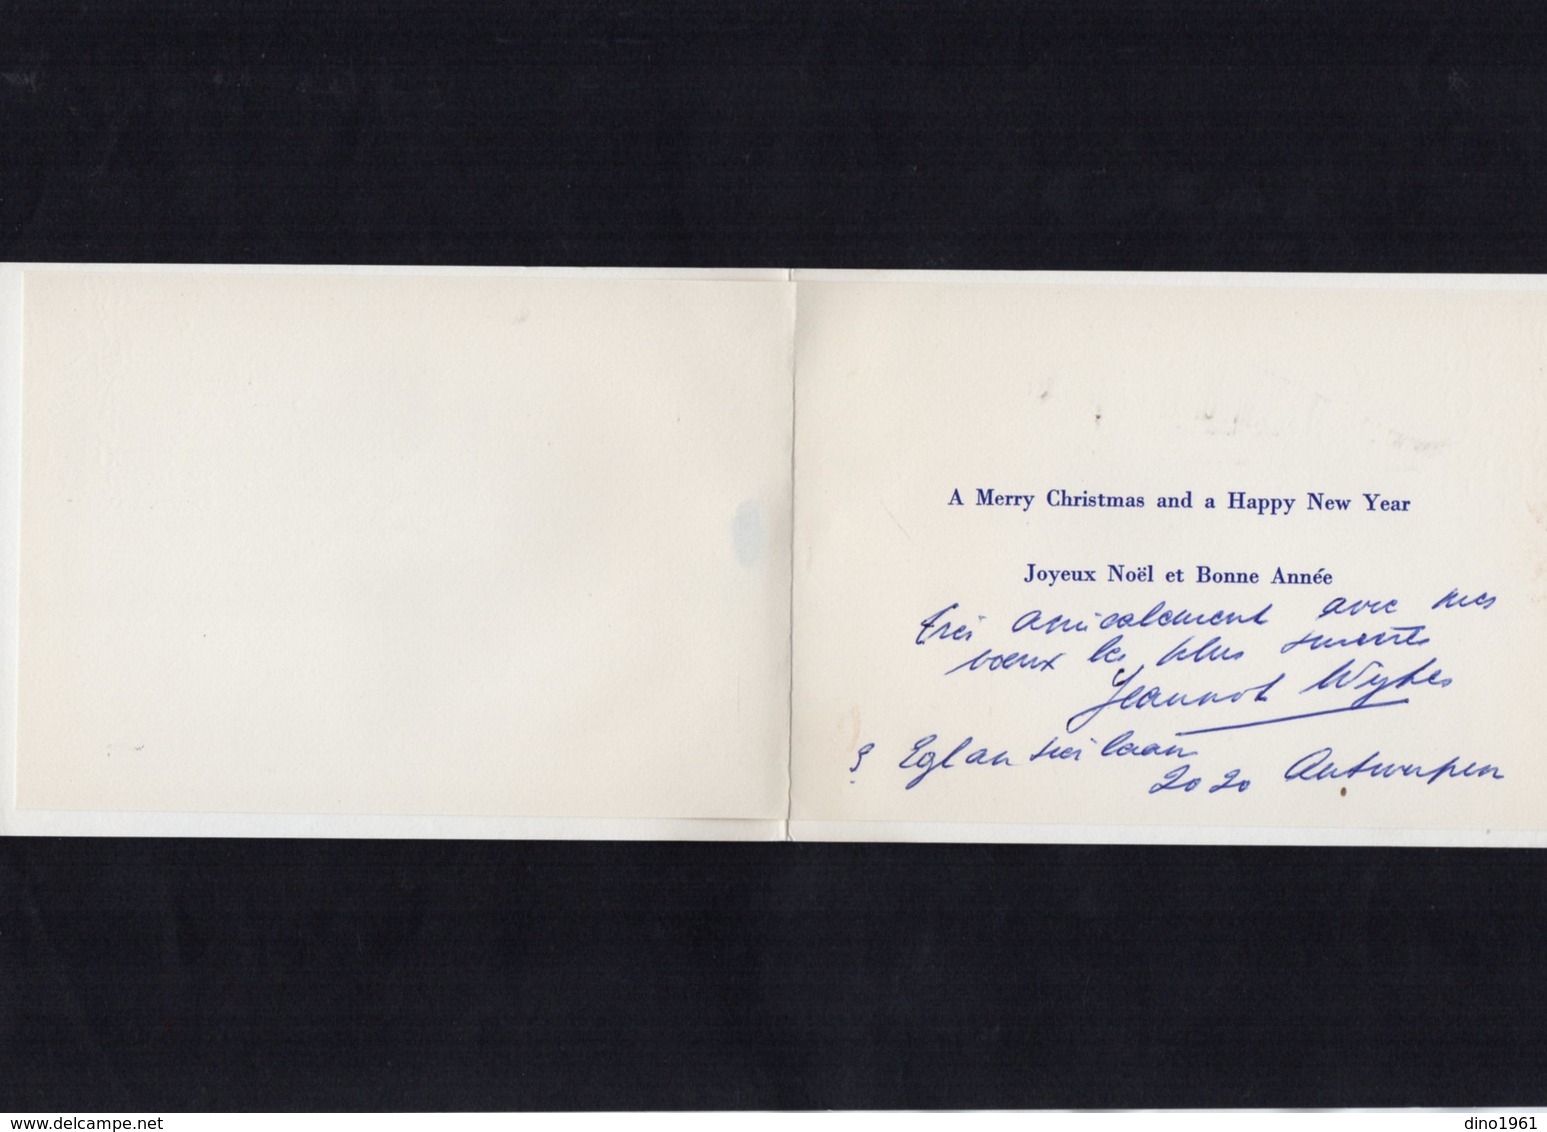 A Merry Christmas and a Happy New Year
Joyeux Noël et Bonne Année
très amicalement avec mes
vœux les plus sincères
Jeannot
9 Eglantierlaan
2020 Antwerpen
delcampe.net
dino1961